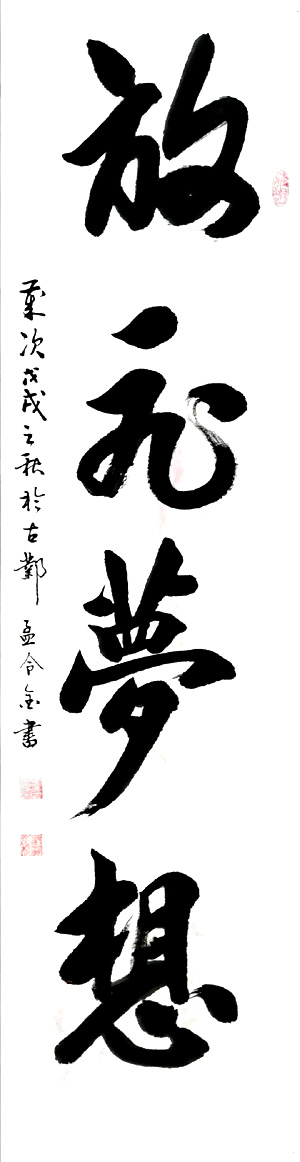 放飛夢想
歲次戊戌之秋於古鄴孟令金書